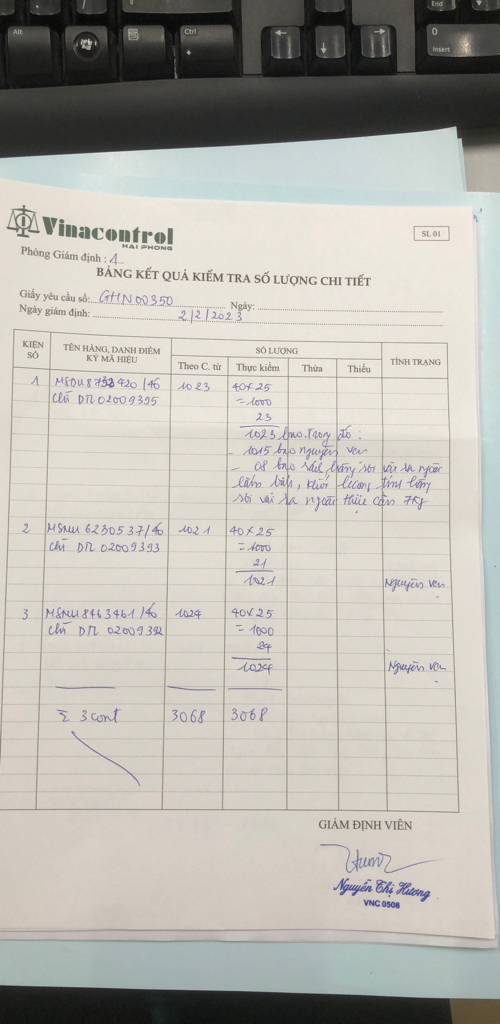 End
Alt
Ctrl
0
Insert
Vinacontrol
HAI PHONG
SL 01
Phòng Giám định : 1
BẢNG KẾT QUẢ KIỂM TRA SỐ LƯỢNG CHI TIẾT
Giấy yêu cầu số: GHN00350 Ngày:
Ngày giám định: 2/2/2023
KIỆN SỐ
TÊN HÀNG, DANH ĐIỂM KÝ MÃ HIỆU
SỐ LƯỢNG
TÌNH TRẠNG
Theo C. từ
Thực kiểm
Thừa
Thiếu
1 /40 1023 40x25
chì DTL 02009395 =1000
23
1023 bao. Trong đó :
- 1015 bao nguyên vẹn
- 08 bao rách, hàng rơi vãi ra ngoài
khối lượng tính hàng
rơi vãi ra ngoài thực cân 7kg
2 MSNU 6230537/40 1021 40x25
chì DTL 02009393 =1000
21
1021 Nguyên vẹn
3 MSMU8463461/40 1024 40x25
chì DTL 02009392 = 1000
24
1024 Nguyên vẹn
Σ 3 cont 3068 3068
GIÁM ĐỊNH VIÊN
Nguyễn Thị Hương
VNC 0508